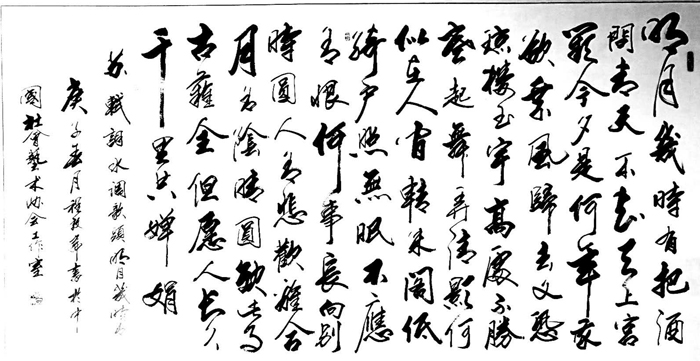 明月幾時有把酒
問青天不知天上宮
闕今夕是何年我
欲乘風歸去又恐
瓊樓玉宇高處不勝
寒起舞弄清影何
似在人間轉朱閣低
綺户照無眠不應
有恨何事長向别
時圓人有悲歡離合
月有陰晴圓缺此事
古難全但愿人长久
千里共嬋娟
苏軾詞水调歌頭明月幾時有
庚子春月書於中
國社會藝术协会工作室